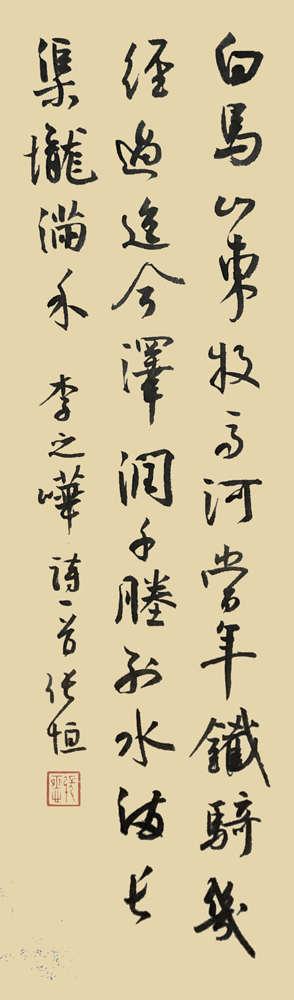 白馬山東牧馬河當年鐵騎幾
經過迄今澤潤千塍利水滿長
渠壠滿禾 李之嘩詩一首張恒